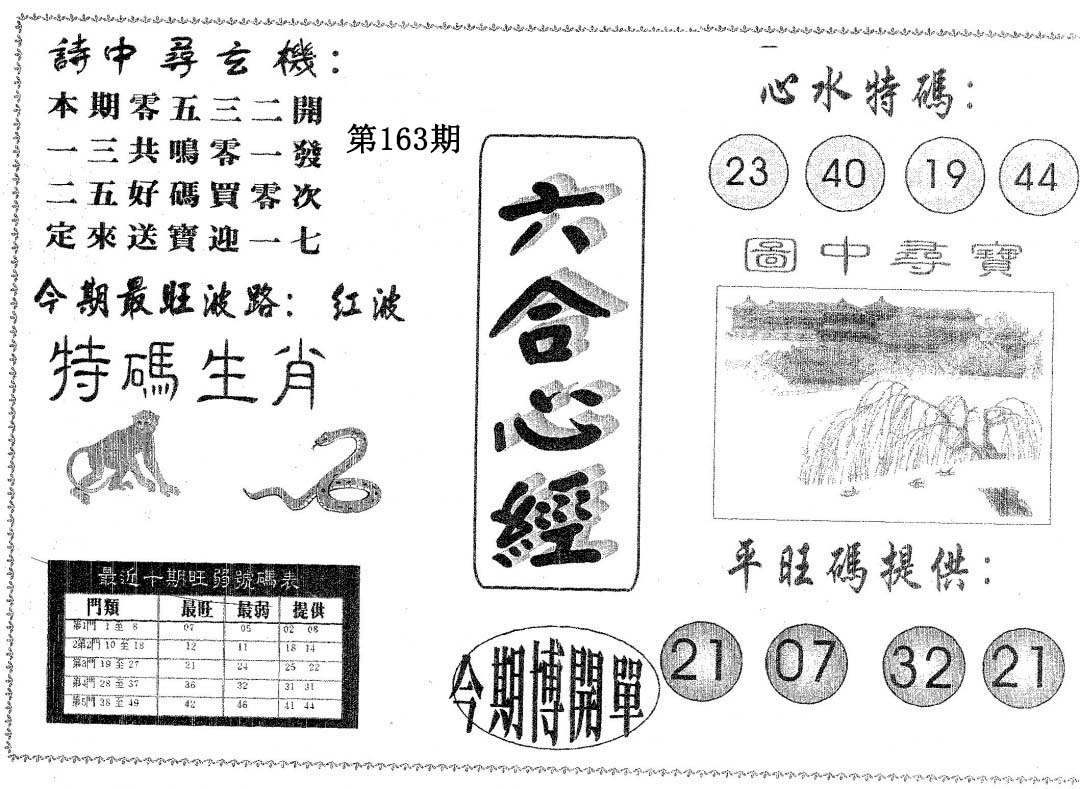 詩中尋玄機：
本期零五三二開
一三共鳴零一發
二五好碼買零次
定來送寶迎一七
今期最旺波路：紅波
特碼生肖
第163期
六合心經
心水特碼：
23 40 19 44
圖中尋寶
平旺碼提供：
21 07 32 21
今期博開單
最近十期旺弱號碼表
門類 最旺 最弱 提供
第1門 1至8 07 05 02 08
2第2門 10至18 12 11 18 14
第3門 19至27 21 24 25 22
第4門 28至37 36 32 31 31
第5門 38至49 42 46 41 44